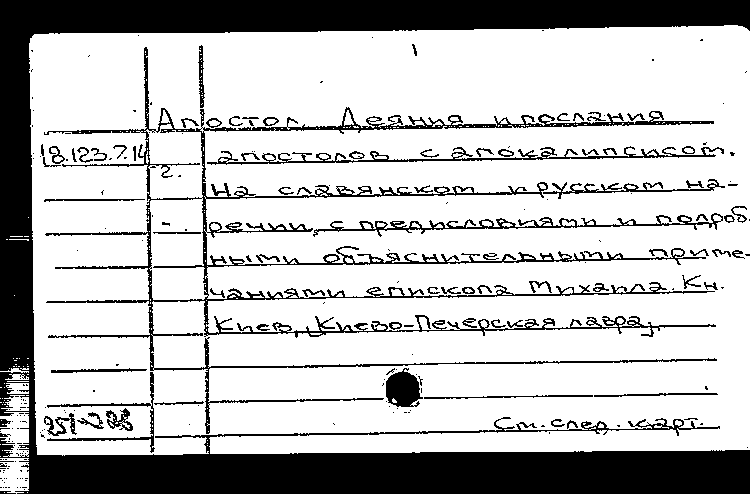 Апостол. Деяния и послания
18.123.7.14 апостолов с апокалипсисом.
2.
На славянском и русском на-
речии, с предисловиями и подроб-
ными объяснительными приме-
чаниями епископа Михаила. Кн.
Киев, Киево-Печерская лавра,
См. след. карт.